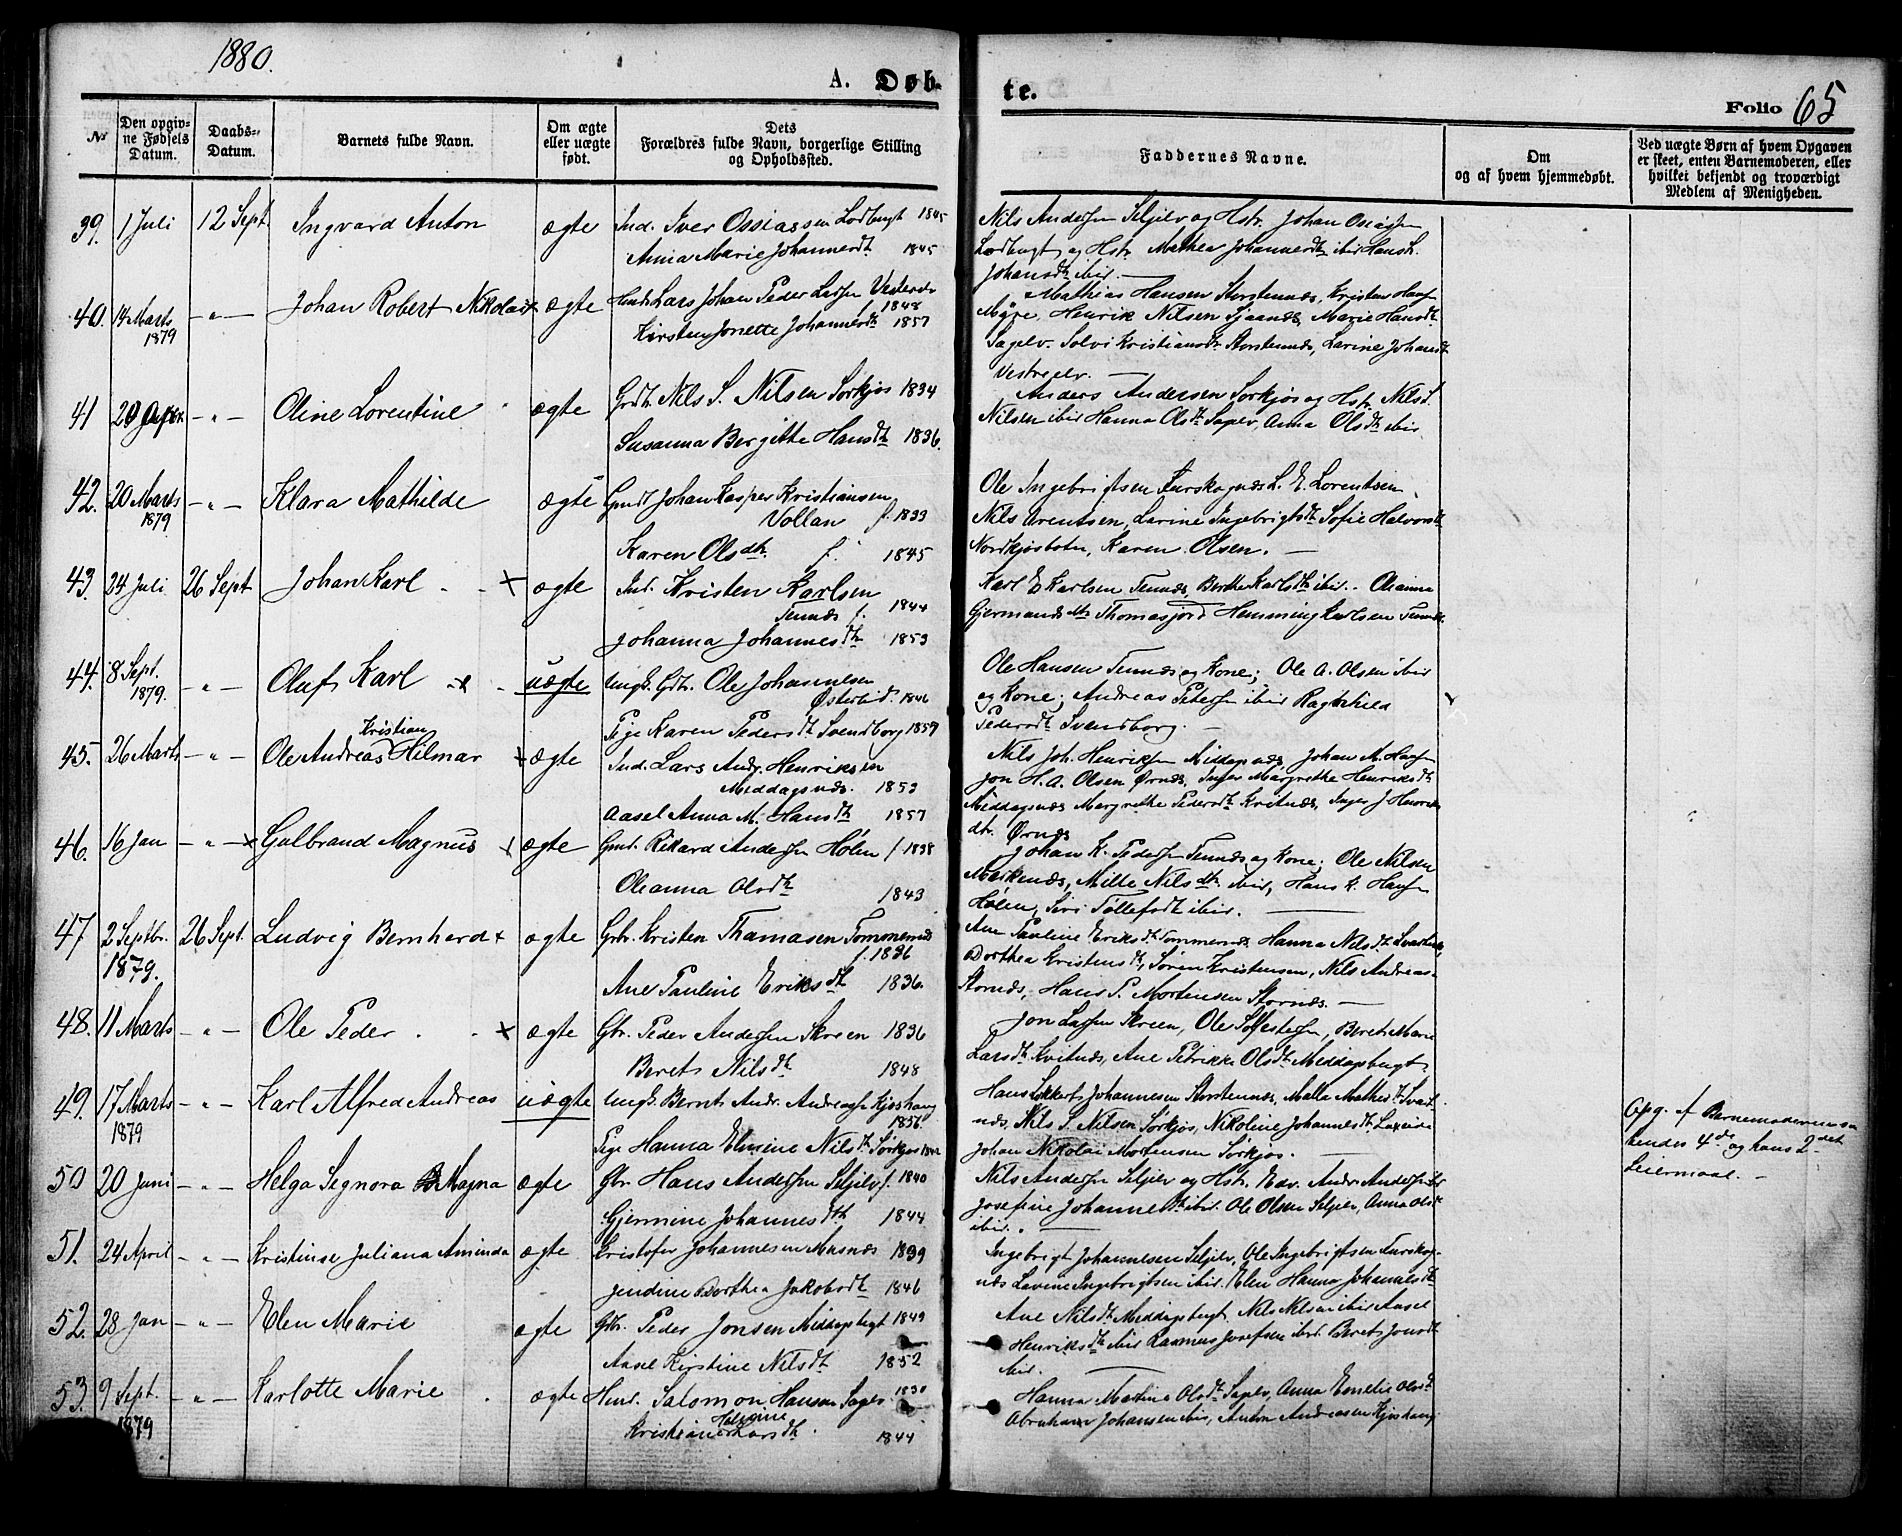 1880.
A. Døb-
te.
Folio 65
№
Den opgiv-
ne Fødsels
Datum.
Daabs-
Datum.
Barnets fulde Navn.
Om ægte
eller uægte
født.
Dets
Forældres fulde Navn, borgerlige Stilling
og Opholdssted.
Faddernes Navne.
Om
og af hvem hjemmedøbt.
Ved uægte Børn af hvem Opgaven
er skeet, enten Barnemoderen, eller
hvilket bekjendt og troværdigt
Medlem af Menigheden.
39. 1 Juli 12 Sept. Ingvard Anton ægte Ind. Iver Ossiassen Lodbugt 1845
Anna Marie Johannesdt 1845
Nils Andersen Seljelv og Hstr. Johan Ossiassen
Lodbugt og Hstr. Mathea Johannesdt ibid Hans L.
Johansdt ibid. —
40. 14 Marts 1879 - " - Johan Robert Nikolai x ægte Lars Johan Peder Larsen
f. 1848
Kirsten Jonette Johannesdt 1857
Mathias Hansen Storstennæs, Kristen Hansen
Henrik Nilsen Marie Hansdt
Sagelv Solvi Kristiansdt Storstennæs, Larine Johansdt
Vestreelv. —
41 - " - Oline Lorentine ægte Grdb. Nils S. Nilsen Sørkjos 1834
Susanna Bergitte Hansdt 1836.
Anders Andersen Sørkjos og Hstr. Nils S.
Nilsen ibid Hanna Olsdt Sagelv, Anna Olsdt ibid
42. 20 Marts 1879 - " - Klara Mathilde ægte Gmd Johan Kasper Kristiansen
Vollan f. 1833
Karen Olsdtr. f. 1845
Ole Ingebrigtsen L. E. Lorentsen
Nils Arentsen, Larine Ingebrigtsdt Sofie Halvorsdt
Nordkjosbotn, Karen Olsen. —
43. 24 Juli 26 Sept Johan Karl x ægte Ind. Kristen Karlsen
Tennæs f. 1844
Johanna Johannesdt 1853
Karl E Karlsen Tennæs, Berthe Karlsdt ibid. Oleanna
Gjermundsdtr Thomasjord Hemming Karlsen Tennæs
44. 8 Sept. 1879. - " - Olaf Karl x uægte Ungk. Gdb. Ole Johannesen
1846
Pige Karen Pedersdt Svendborg 1859
Ole Hansen Tennæs og Kone; Ole A. Olsen ibid
og Kone; Andreas Petersen ibid Ragnhild
Pedersdt Svendborg. —
45. 26 Marts - " - Ole Andreas Kristian Hilmar x ægte Ind. Lars Andr. Henriksen
Middagsnæs. 1853
Aasel Anna M. Hansdt 1857
Nils Joh. Henriksen Middagsnæs, Johan M. Hansen
Jon H. A. Olsen Ørnæs, Inger Margrethe Henriksdt
Middagsnæs Margrethe Pedersdt Kvitnæs, Inger J Henriks
dtr. Ørnæs
46. 16 Jan - " - x Gulbrand Magnus x ægte Gmd. Rikard Andersen Holen f 1838
Oleanna Olsdt 1843
Johan K. Pedersen Tennæs og Kone; Ole Nilsen
Markenæs, Milte Nilsdtr ibid, Hans K. Hansen
Holen, Siri Tollefsdt ibid. —
47. 2 Septbr. 1879. 26 Sept. Ludvig Bernhard x ægte Gbr. Kristen Thomasen Tommernæs
f. 1836
Ane Pauline Eriksdt 1836.
Ane Pauline Eriksdt Tommernæs Hanna Nilsdt
Dorthea Kristensdt, Søren Kristensen, Nils Andreas-
Stornæs, Hans P. Mortensen Stornæs. —
48. 11 Marts - " - Ole Peder x ægte Gbr. Peder Andersen Skreen 1836
Berets Nilsdt 1848
Jon Larsen Skreen, Ole Berets Marie
Larsdt Kvitnæs, Ane Petrikke Olsdt Middagsbugt
49. 17 Marts 1879 - " - Karl Alfred Andreas uægte Ungk. Bernt Andr. Andreassen Kjoshaug
1856
Pige Hanna Elmine Nilsdt Sørkjos
Hans Sikkert Johannesen Storstennæs, Malla Mathisdt
næs, Nils S. Nilsen Sørkjos, Nikoline Johannesdt
Johan Nikolai Mortensen Sørkjos. —
Opg. af Barnemoderen
hendes 4de og hans 2det
Leiermaal. —
50 20 Juni - " - Helga Segnora Magna ægte Gbr. Hans Andersen Seljelv f. 1840
Gjermine Johannesdtr 1844
Nils Andersen Seljelv og Hstr. Edv. Andr. Andersen ibid
Josefine Johannesdt ibid. Ole Olsen Seljelv, Anna Olsdt
ibid.
51. 24 April - " - Kristinse Juliana Aminda ægte Kristofer Johannesen Masnæs 1839
Jendine Dorthea Jakobsdt 1846
Ingebrigt Johannesen Seljelv, Ole Ingebrigtsen
næs Lavine Ingebrigtsen ibid. Elen Hanna Johannesdt
52. 28 Jan - " - Elen Marie ægte Gbr. Peder Jonsen Middagsbugt 1849
Aasel Kirstine Nilsdt 1852
Ane Nilsdt Middagsbugt. Nils Nilsen ibid Aasel
Henriksdt ibid Rasmus Josefsen ibid Berets Jonsdt
ibid. —
53. 9 Sept. 1879 - " - Karlotte Marie ægte Hmd. Salomon Hansen Sagelv 1830
Kristiane Helgine Larsdt. 1844
Hanna Martine Olsdt Sagelv, Anna Emelie Olsdt
Abraham Johansen ibid, Anton Andreasen Kjoshaug